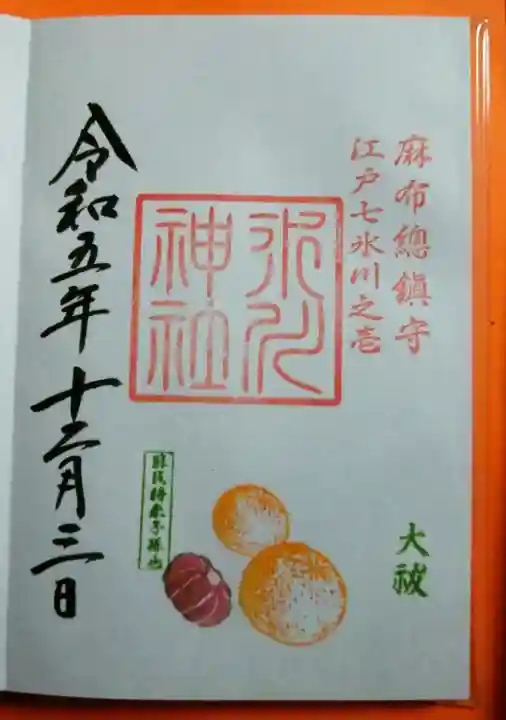 麻布總鎮守
江戸七氷川之壱
大祓
氷川
神社
蘇民将来子孫也
令和五年十二月三日